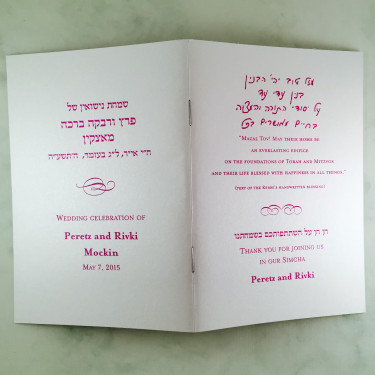 שמחת נישואין של
פרץ ורבקה ברכה
מאצקין
ח״י אייר, ל״ג בעומר, ה׳תשע״ה
Wedding celebration of
Peretz and Rivki
Mockin
May 7, 2015
מזל טוב יהי׳ הבנין
בנין עדי עד
על יסודי התורה והמצוה
בחיים מאושרים בכל
"Mazal Tov! May their home be
an everlasting edifice
on the foundations of Torah and Mitzvos
and their life blessed with happiness in all things."
(text of the Rebbe's handwritten blessing)
חן חן על השתתפותכם בשמחתנו
Thank you for joining us
in our Simcha
Peretz and Rivki